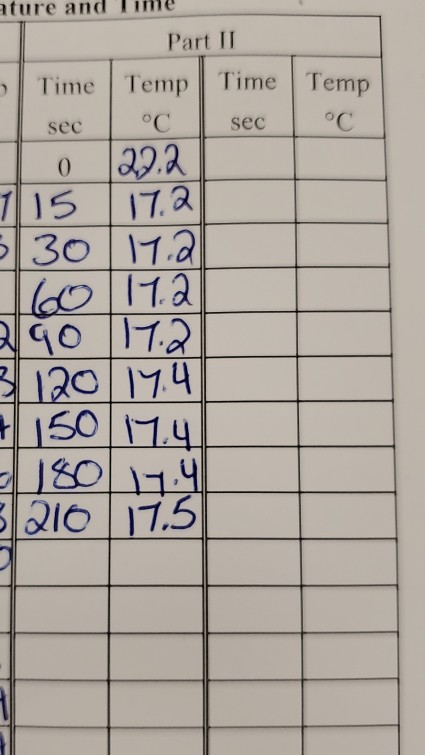 ature and Time
Part II
Time Temp Time Temp
sec °C sec °C
0 22.2
15 17.2
30 17.2
60 17.2
90 17.2
120 17.4
150 17.4
180 17.4
210 17.5